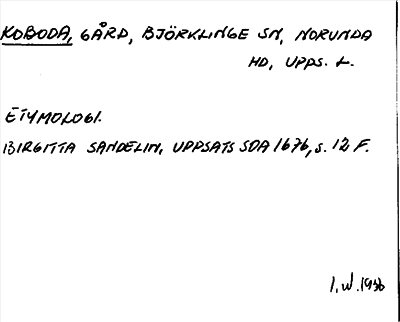 KOBODA, GÅRD, BJÖRKLINGE SN, NORUNDA
HD, UPPS. L.
ETYMOLOGI.
BIRGITTA SANDELIN, UPPSATS SDA 1676, s. 12 F.
I.W. 1936